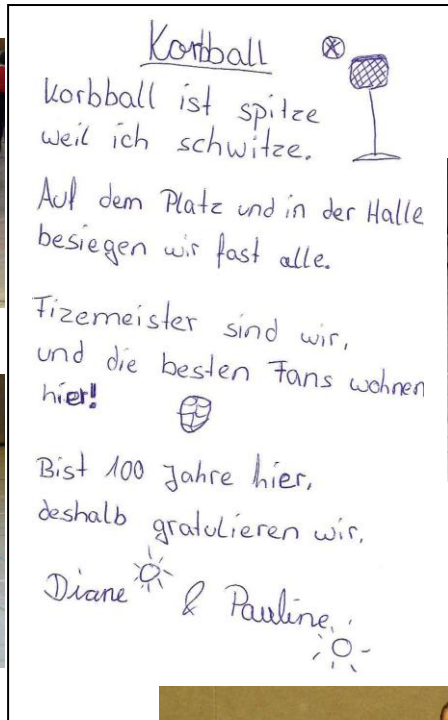 Korbball
Korbball ist spitze
weil ich schwitze.
Auf dem Platz und in der Halle
besiegen wir fast alle.
Fizemeister sind wir,
und die besten Fans wohnen
hier!
Bist 100 Jahre hier,
deshalb gratulieren wir.
Diane & Pauline